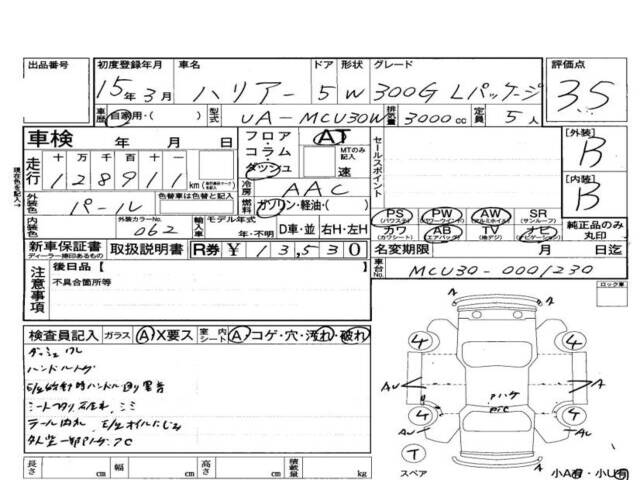 出品番号
初度登録年月 車名 ドア 形状 グレード 評価点
15年3月 ハリアー 5 W 300G Lパッケージ 3.5
車歴 自家用・( ) 型式 UA-MCU30W 排気量 3000cc 定員 5人
車検 年 月 日
フロア・コラム・ダッシュ AT MTのみ記入 速
セールスポイント
[外装] B
[内装] B
現在色を記入→
走行 十 万 千 百 十 一
128911 km
冷房 AAC
外装色 パール 色替車は色替と記入
燃料 ガソリン・軽油・( )
内装色 外装カラーNo. 062 輸入車 モデル年式 年・不明 D車・並 右H・左H
PS (パワステ) PW (パワーウインド) AW (アルミホイル) SR (サンルーフ)
カワ (カワシート) AB (エアバッグ) TV (地デジ) ナビ (ナビゲーション)
純正品のみ丸印
新車保証書 ディーラー捺印あるもの 取扱説明書 R券 ¥13,530
名変期限 月 日迄
車台No. MCU30-0001230
注意事項 後日品【
不具合箇所等
ロック車
検査員記入 ガラス A X要ス 室内 シート A・コゲ・穴・汚れ・破れ
ハンドルスレ
4 4
AW A
アハゲ
4 4
T
スペア
長さ cm 幅 cm 高さ cm 積載量 kg
小A・小U